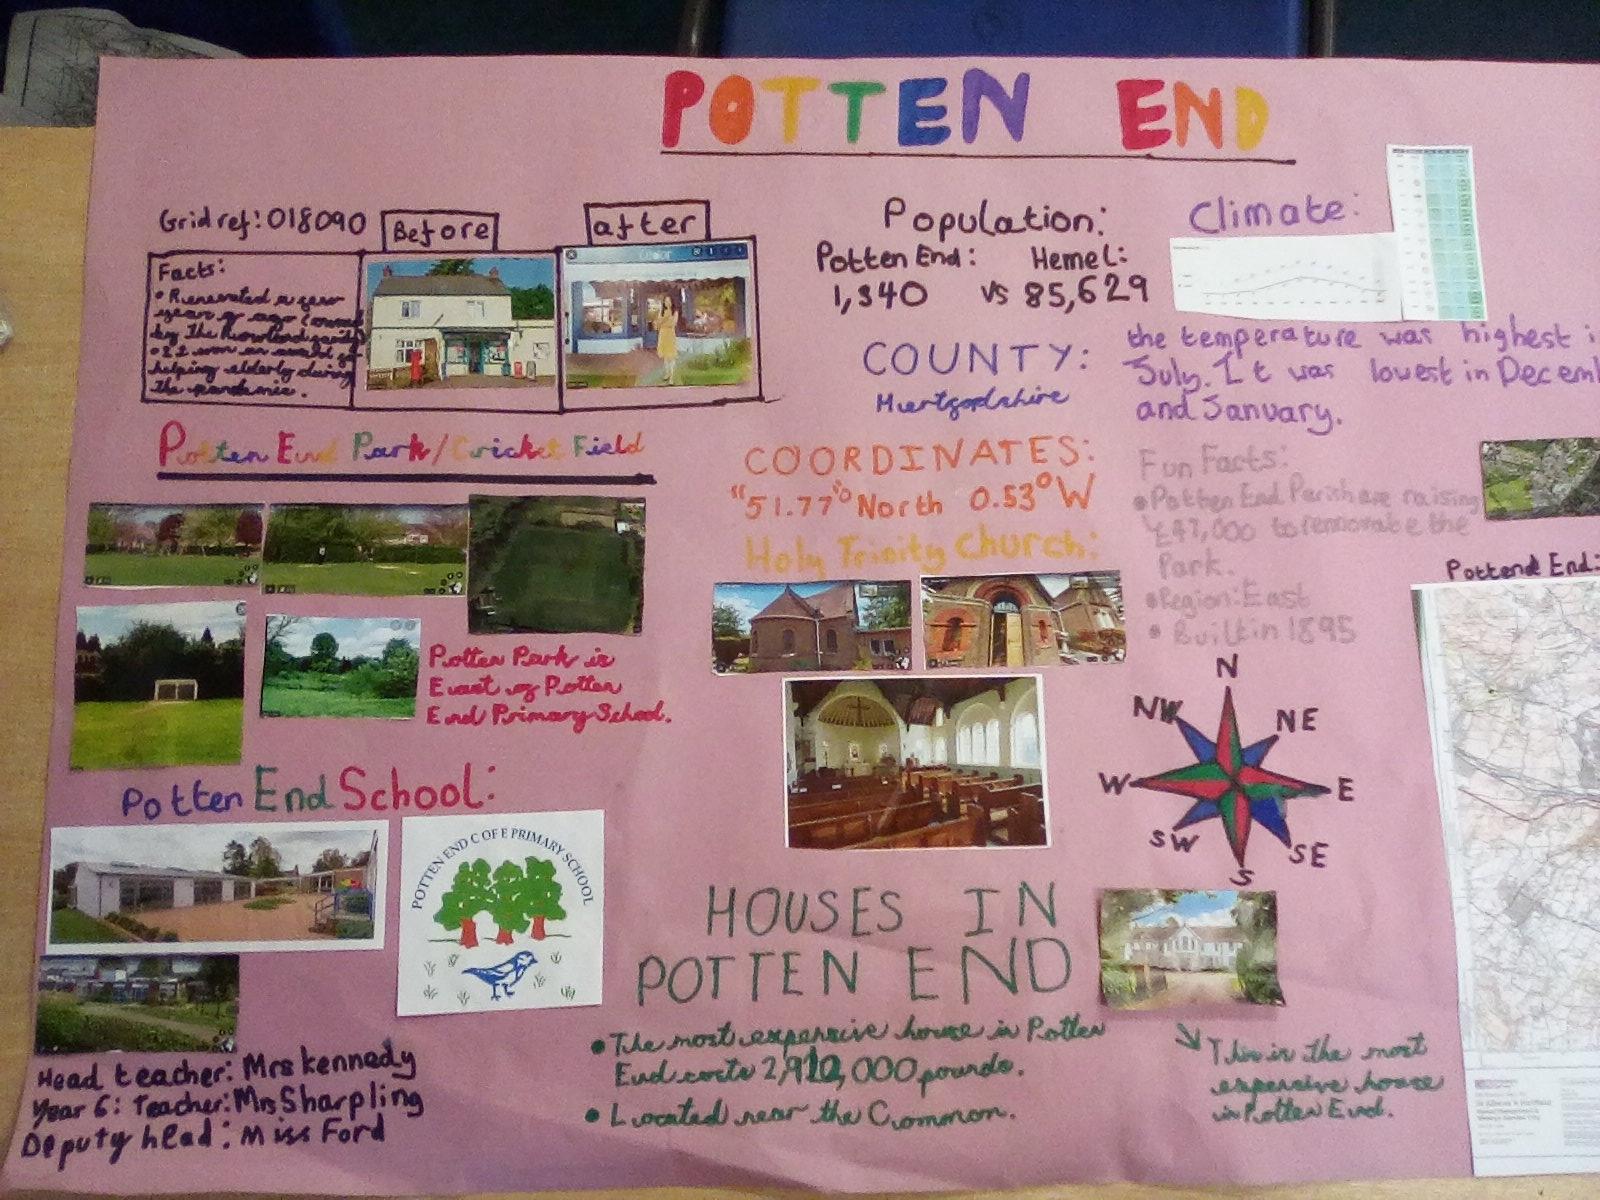 POTTEN END
Grid ref: 018090
Before
after
Facts:
• Renovated a year
year ago (owned
by The
• It won an award for
helping elderly during
The pandemic.
Population:
Potten End: Hemel:
1,340 vs 85,629
COUNTY:
Climate:
the temperature was highest i
July. It was lowest in Decem
and January.
Potten End Park/Cricket Field
Potten Park is
East of Potten
End Primary School.
COORDINATES:
"51.77"° North 0.53° W
Holy Trinity Church:
Fun Facts:
• Potten End Parish are raising
£47,000 to rennovate the
Park.
• Region: East
• Built in 1895
Pottend End:
N
NW NE
W E
SW SE
S
Potten End School:
POTTEN END C OF E PRIMARY SCHOOL
Head teacher: Mrs Kennedy
Year 6: Teacher: Mrs Sharpling
Deputy head: Miss Ford
HOUSES IN
POTTEN END
• The most expensive house in Potten
End costs 2,910,000 pounds.
• Located near the Common.
This is the most
expensive house
in Potten End.